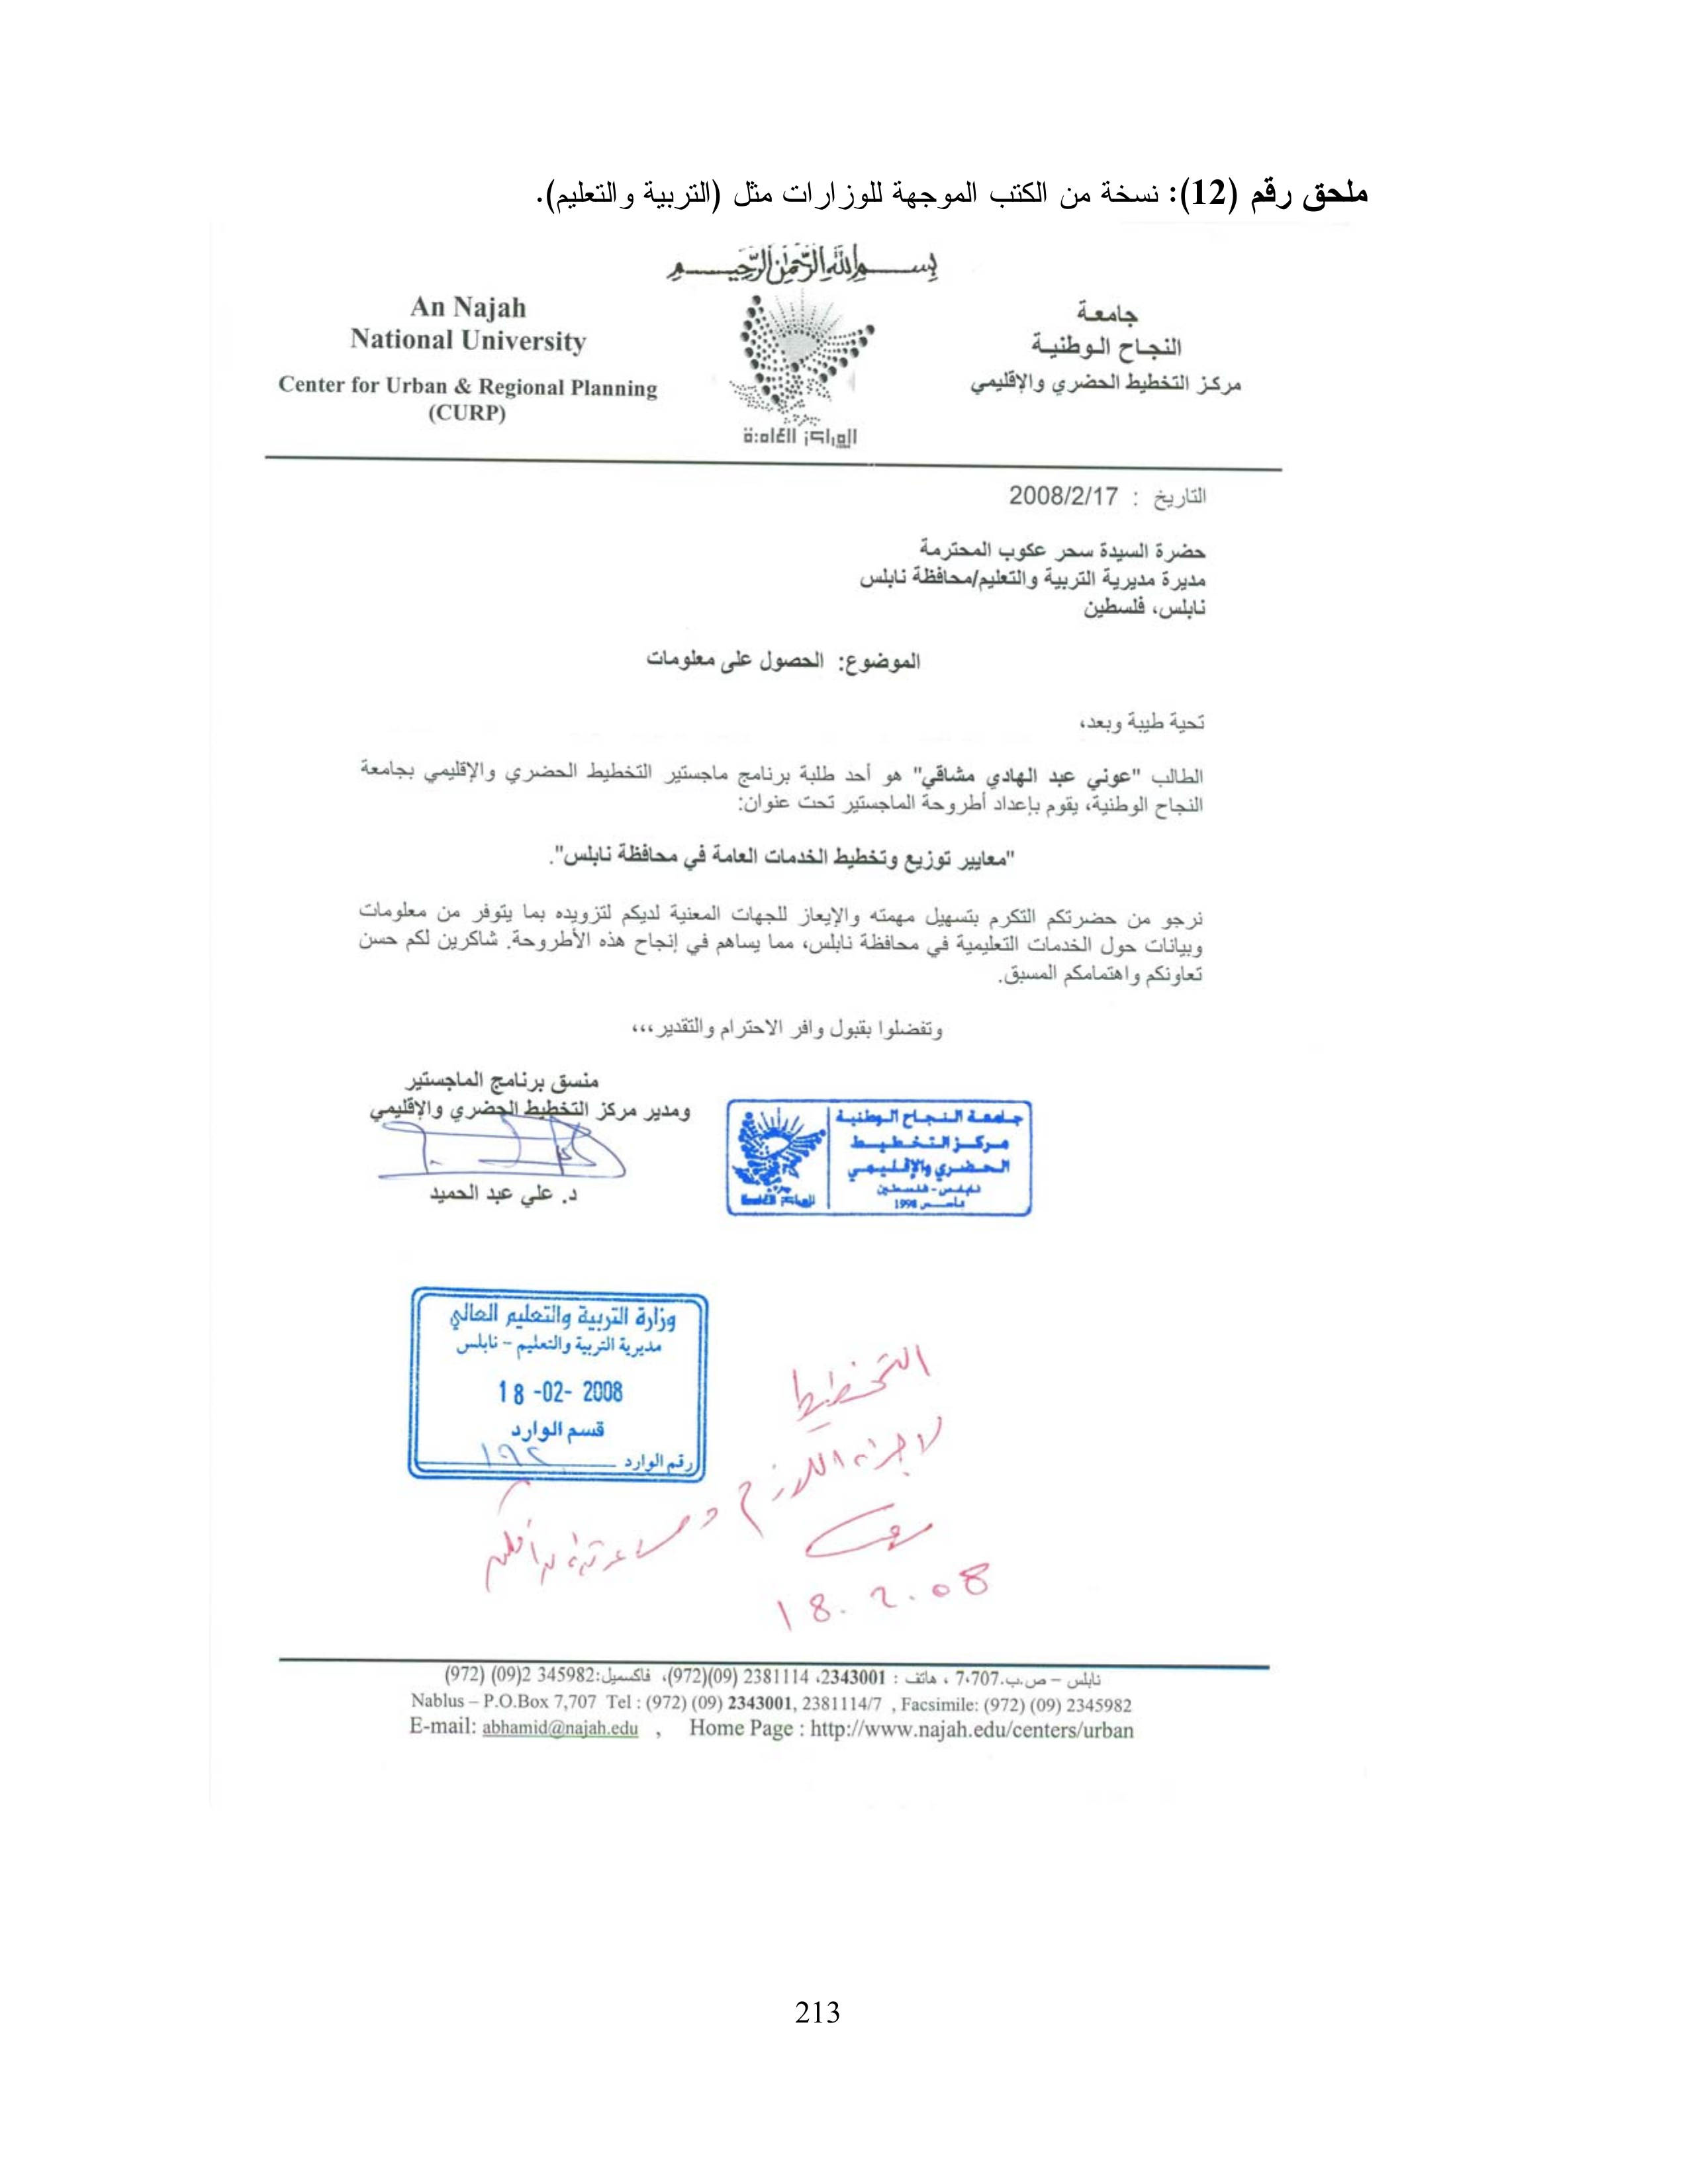 ملحق رقم (12): نسخة من الكتب الموجهة للوزارات مثل (التربية والتعليم).
بسم الله الرحمن الرحيم
An Najah
National University
Center for Urban & Regional Planning
(CURP)
جامعة
النجاح الوطنية
مركز التخطيط الحضري والإقليمي
التاريخ : 2008/2/17
حضرة السيدة سحر عكوب المحترمة
مديرة مديرية التربية والتعليم/محافظة نابلس
نابلس، فلسطين
الموضوع: الحصول على معلومات
تحية طيبة وبعد،
الطالب "عوني عبد الهادي مشاقي" هو أحد طلبة برنامج ماجستير التخطيط الحضري والإقليمي بجامعة
النجاح الوطنية، يقوم بإعداد أطروحة الماجستير تحت عنوان:
"معايير توزيع وتخطيط الخدمات العامة في محافظة نابلس".
نرجو من حضرتكم التكرم بتسهيل مهمته والإيعاز للجهات المعنية لديكم لتزويده بما يتوفر من معلومات
وبيانات حول الخدمات التعليمية في محافظة نابلس، مما يساهم في إنجاح هذه الأطروحة. شاكرين لكم حسن
تعاونكم واهتمامكم المسبق.
وتفضلوا بقبول وافر الاحترام والتقدير،،،
منسق برنامج الماجستير
ومدير مركز التخطيط الحضري والإقليمي
د. علي عبد الحميد
جامعة النجاح الوطنية
مركز التخطيط
الحضري والإقليمي
نابلس - فلسطين
تأسس 1998
وزارة التربية والتعليم العالي
مديرية التربية والتعليم - نابلس
18 -02- 2008
قسم الوارد
رقم الوارد ١٩٢
التخطيط
لاجراء اللازم
18.2.08
نابلس – ص.ب.7،707 ، هاتف : 2343001، 2381114 (09)(972)، فاكسميل:345982 2(09) (972)
Nablus – P.O.Box 7,707 Tel : (972) (09) 2343001, 2381114/7 , Facsimile: (972) (09) 2345982
E-mail: abhamid@najah.edu , Home Page : http://www.najah.edu/centers/urban
213